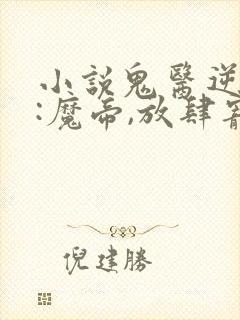 小說鬼醫逆
:魔帝,放肆寵
倪建勝